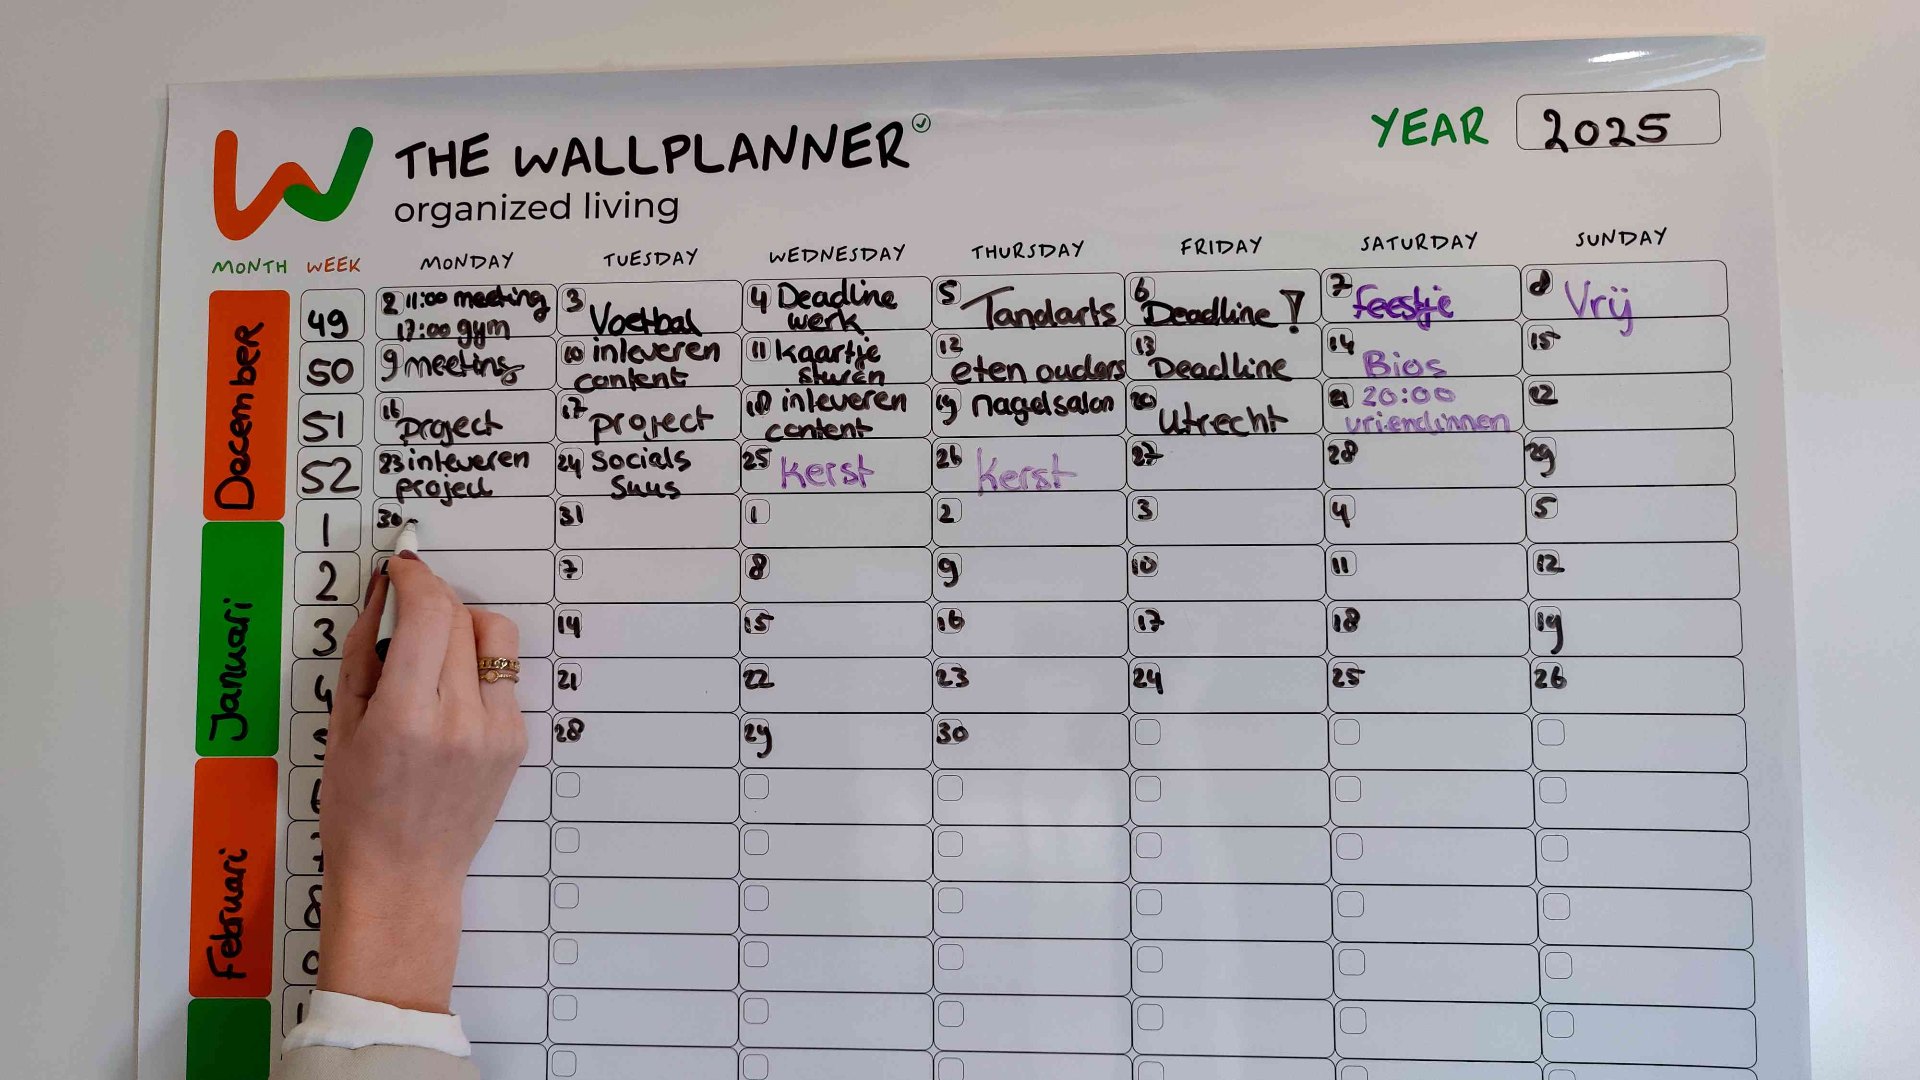 THE WALLPLANNER
organized living
YEAR 2025
MONTH WEEK MONDAY TUESDAY WEDNESDAY THURSDAY FRIDAY SATURDAY SUNDAY
December
49
2 11:00 meeting
17:00 gym
3 Voetbal
4 Deadline
werk
5 Tandarts
6 Deadline!
7 feestje
8 Vrij
50
9 meeting
10 inleveren
content
11 kaartje
sturen
12 eten ouders
13 Deadline
14 Bios
15
51
16 project
17 project
18 inleveren
content
19 nagelsalon
20 Utrecht
21 20:00
vriendinnen
22
52
23 inleveren
project
24 Socials
Suus
25 Kerst
26 Kerst
27
28
29
Januari
1 30 31 1 2 3 4 5
2 7 8 9 10 11 12
3 14 15 16 17 18 19
4 21 22 23 24 25 26
5 28 29 30
Februari